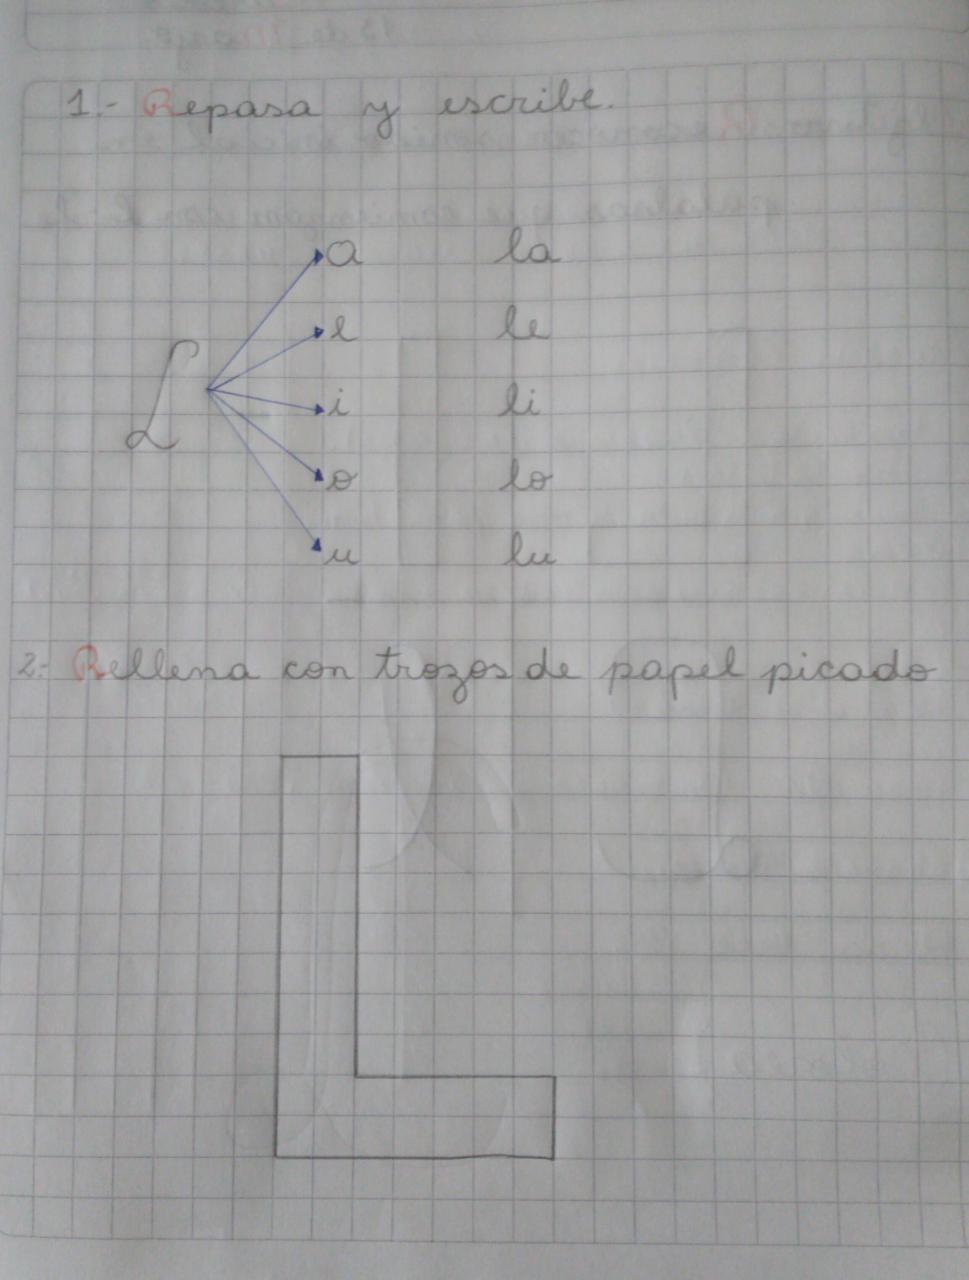 1.- Repasa y escribe.
a la
e le
L i li
o lo
u lu
2.- Rellena con trozos de papel picado